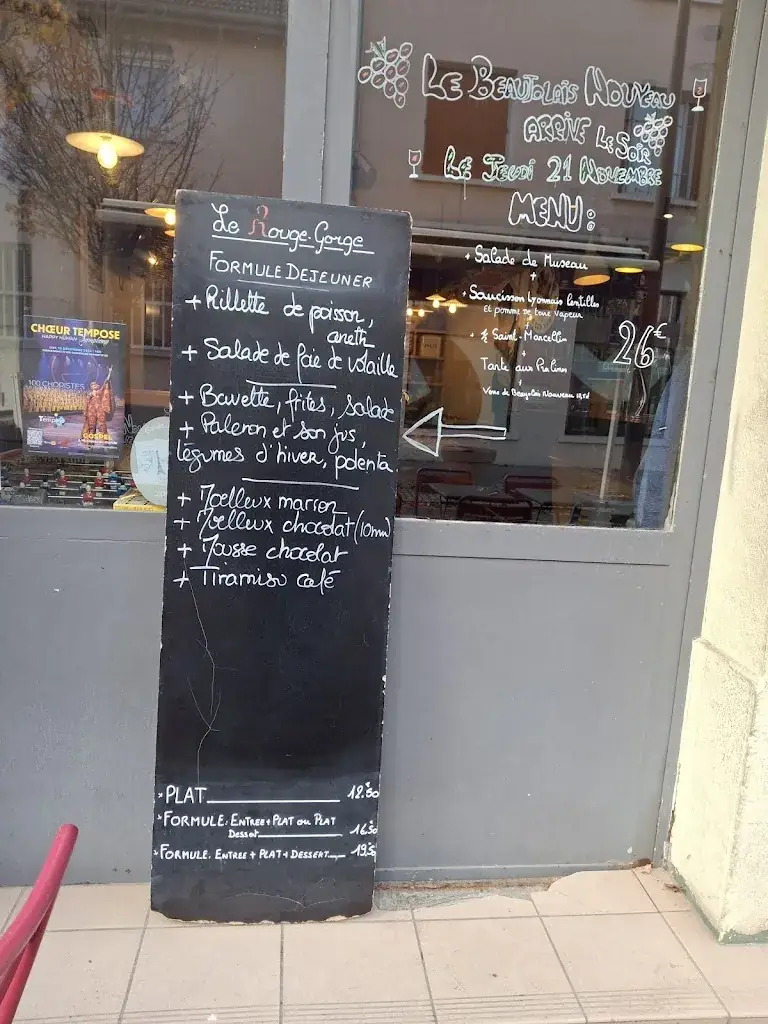 Le Beaujolais Nouveau
arrive le soir
Le Jeudi 21 Novembre
MENU:
+ Salade de Museau
+
+ Saucisson Lyonnais lentilles
et pomme de terre vapeur
+ ½ Saint-Marcellin
+
Tarte aux Pralines
+
Verre de Beaujolais Nouveau
26€
Le Rouge-Gorge
FORMULE DEJEUNER
+ Rillette de poisson,
aneth
+ Salade de foie de volaille
+ Bavette, frites, salade
+ Paleron et son jus,
légumes d'hiver, polenta
+ Moelleux marron
+ Moelleux chocolat (10mn)
+ Mousse chocolat
+ Tiramisu café
* PLAT 12.50
* FORMULE: ENTREE + PLAT ou PLAT
Dessert 16.50
* FORMULE: ENTREE + PLAT + DESSERT 19.50
CHŒUR TEMPOSE
HAPPY HUMAN
100 CHORISTES
Tempo
GOSPEL